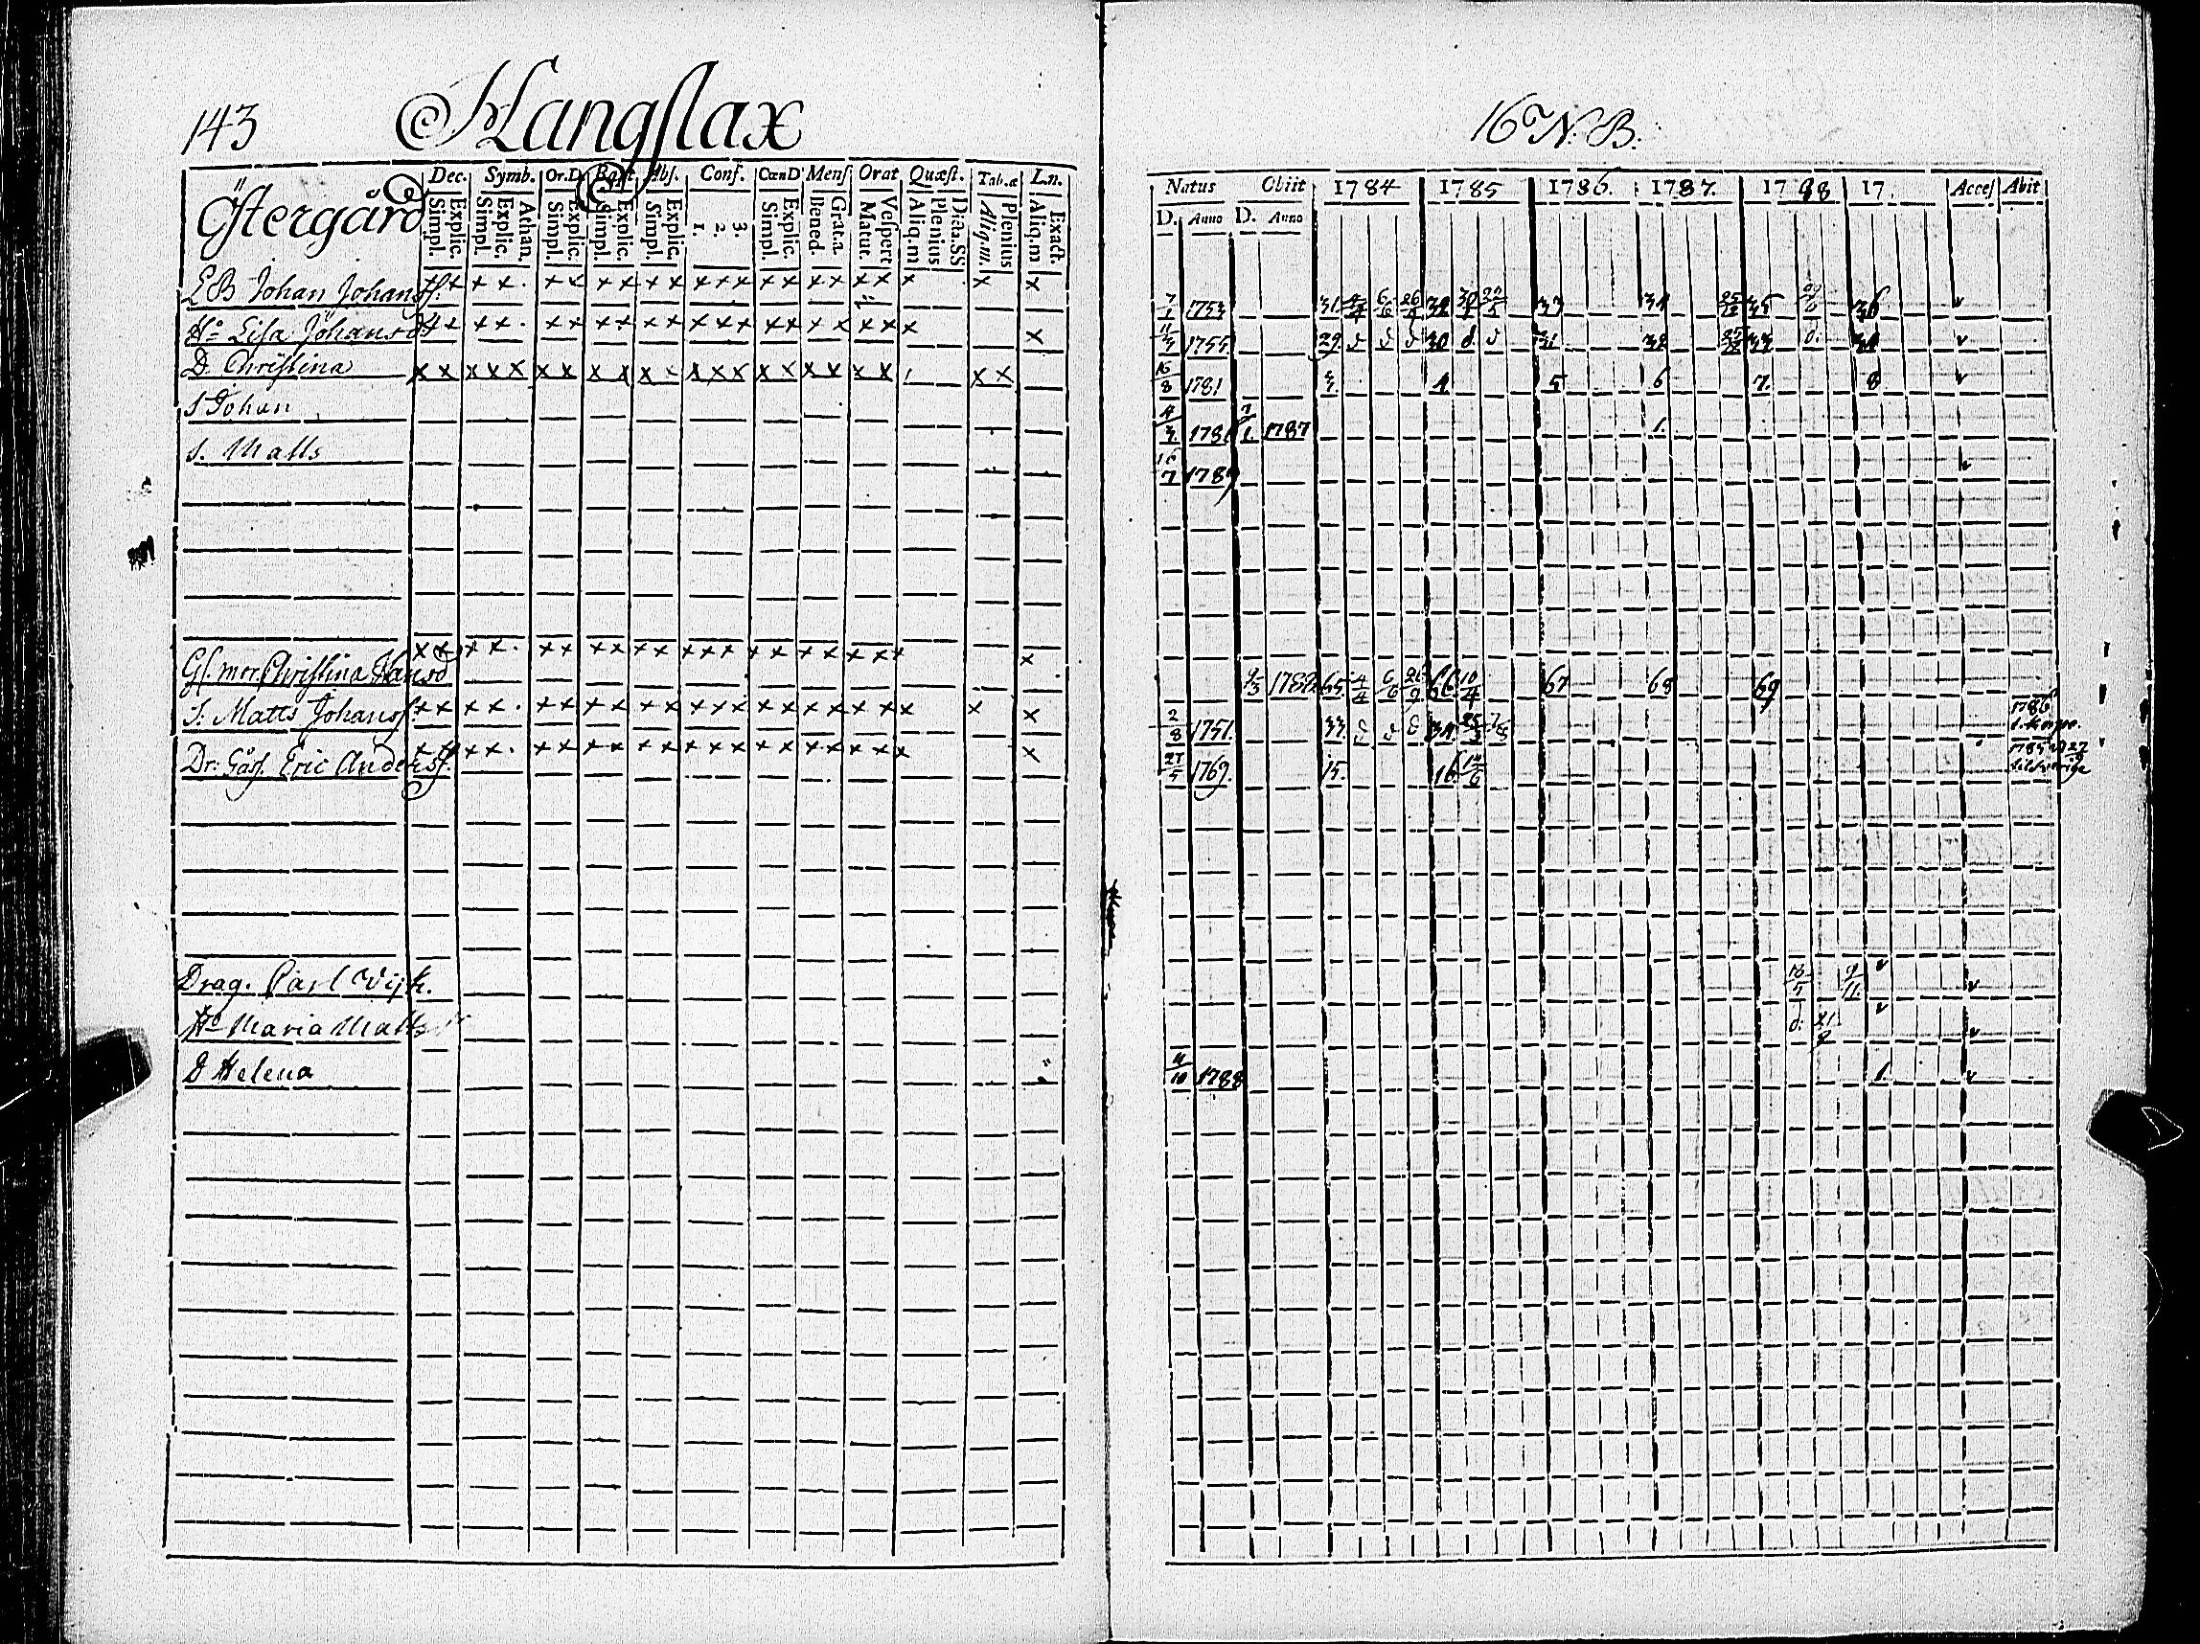 143 Hangslax
16 N:B.
Östergård
Dec. Symb. Or.D. Bapt. Abs. Conf. CœnD Mens Orat Quæst. Tab.æ Ln.
Simpl. Explic. Simpl. Explic. Athan. Simpl. Explic. Simpl. Explic. Simpl. Explic. 1. 2. 3. Simpl. Explic. Bened. Grat.a. Matut. Vespert Aliq.m Plenius Dicta SS Aliq.m. Plenius Aliq.m Exact.
Natus Obiit 1784 1785 1786. 1787. 1788 17. Acces Abit
D. Anno D. Anno
EB Johan Johanss. x x x x . x x x x x x x x x x x x x x x x x x x
7/1 1753 31 6/6 32 33 34 35 36 v
H:o Lisa Johansd x x x x . x x x x x x x x x x x x x x x x x
1755 29 d d d 30 d d 31 32 33 d. 34 v
D. Christina x x x x x x x x x x x x x x x x x x x x x x
16/8 1781 3. 4. 5 6 7. 8 v
S Johan
4/3 1786 7/1. 1787 1.
S. Matts
16/7 1789 v
Gl. mor Christina Hansd x x x x . x x x x x x x x x x x x x x x x x
9/3 1789. 65 4/4 6/6 26/9 66 10/4 67 68 69
S: Matts Johanss. x x x x . x x x x x x x x x x x x x x x x x x x
2/8 1751. 33 d d d 34 1786
Dr: Gåss. Eric Anderss. x x x x . x x x x x x x x x x x x x x x x x x
27/5 1769. 15. 16. 1785
Drag. Carl Wijk.
18/5 9/11. v v
H:o Maria Matts
d: 21/9 v v
D Helena
11/10 1788 1. v